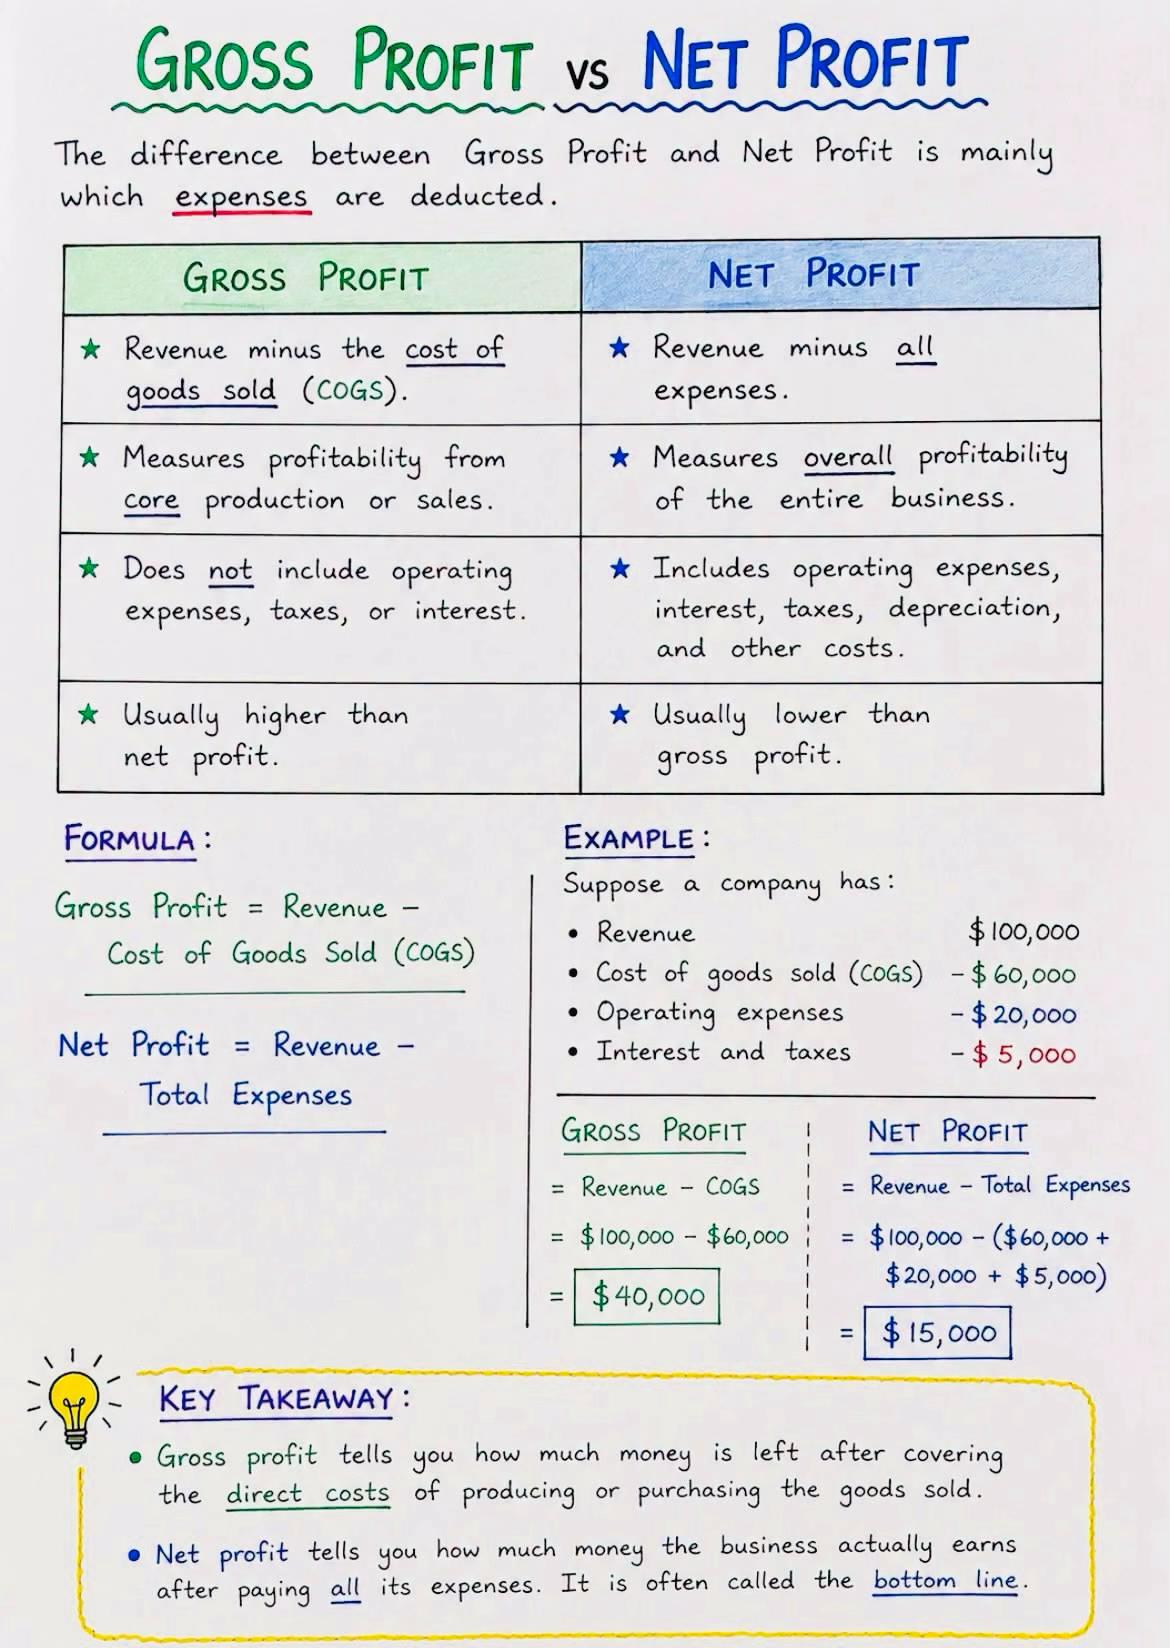 GROSS PROFIT vs NET PROFIT
The difference between Gross Profit and Net Profit is mainly
which expenses are deducted.
GROSS PROFIT
NET PROFIT
★ Revenue minus the cost of
goods sold (COGS).
★ Revenue minus all
expenses.
★ Measures profitability from
core production or sales.
★ Measures overall profitability
of the entire business.
★ Does not include operating
expenses, taxes, or interest.
★ Includes operating expenses,
interest, taxes, depreciation,
and other costs.
★ Usually higher than
net profit.
★ Usually lower than
gross profit.
FORMULA:
Gross Profit = Revenue –
Cost of Goods Sold (COGS)
Net Profit = Revenue –
Total Expenses
EXAMPLE:
Suppose a company has:
• Revenue $100,000
• Cost of goods sold (COGS) – $60,000
• Operating expenses – $20,000
• Interest and taxes – $5,000
GROSS PROFIT
= Revenue – COGS
= $100,000 – $60,000
= $40,000
NET PROFIT
= Revenue – Total Expenses
= $100,000 – ($60,000 +
$20,000 + $5,000)
= $15,000
KEY TAKEAWAY:
• Gross profit tells you how much money is left after covering
the direct costs of producing or purchasing the goods sold.
• Net profit tells you how much money the business actually earns
after paying all its expenses. It is often called the bottom line.